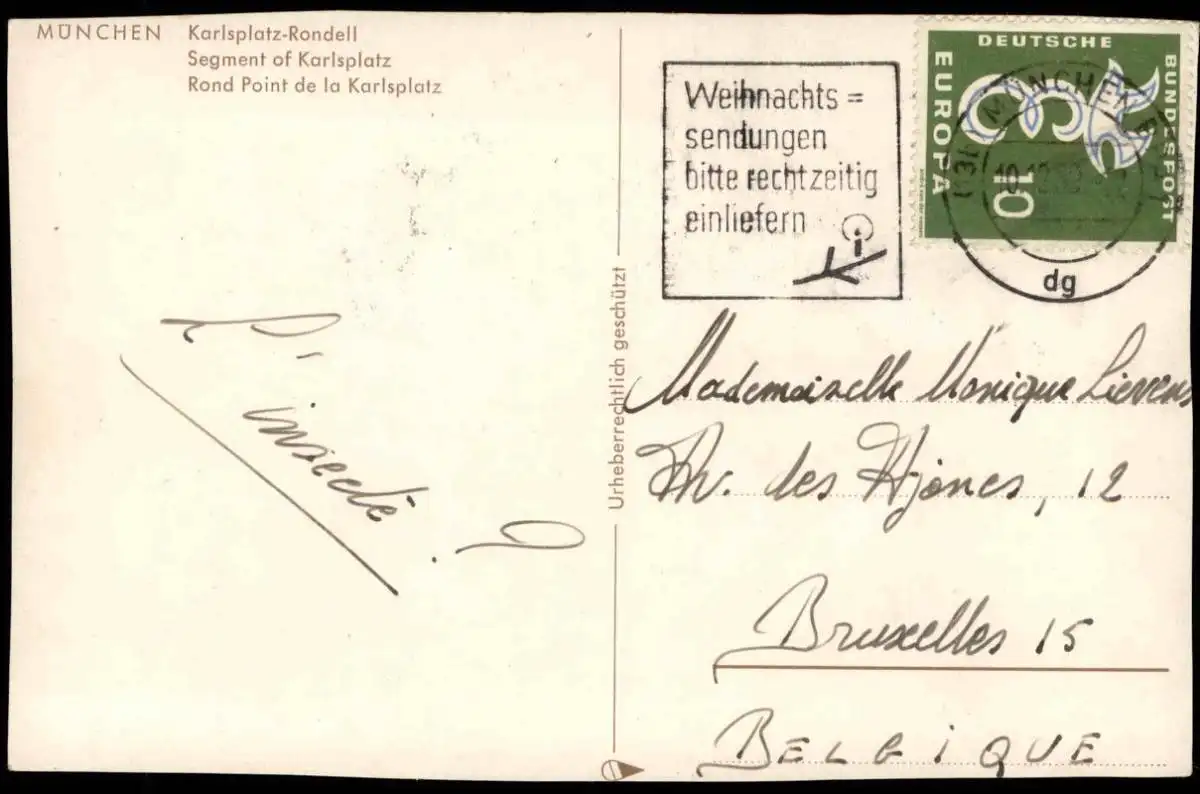 MÜNCHEN Karlsplatz-Rondell
Segment of Karlsplatz
Rond Point de la Karlsplatz
Weihnachts=
sendungen
bitte rechtzeitig
einliefern
DEUTSCHE
BUNDESPOST
EUROPA
10
MÜNCHEN
dg
Urheberrechtlich geschützt
L'
insecte
Mademoiselle Monique Lievens
Av. des , 12
Bruxelles 15
BELGIQUE